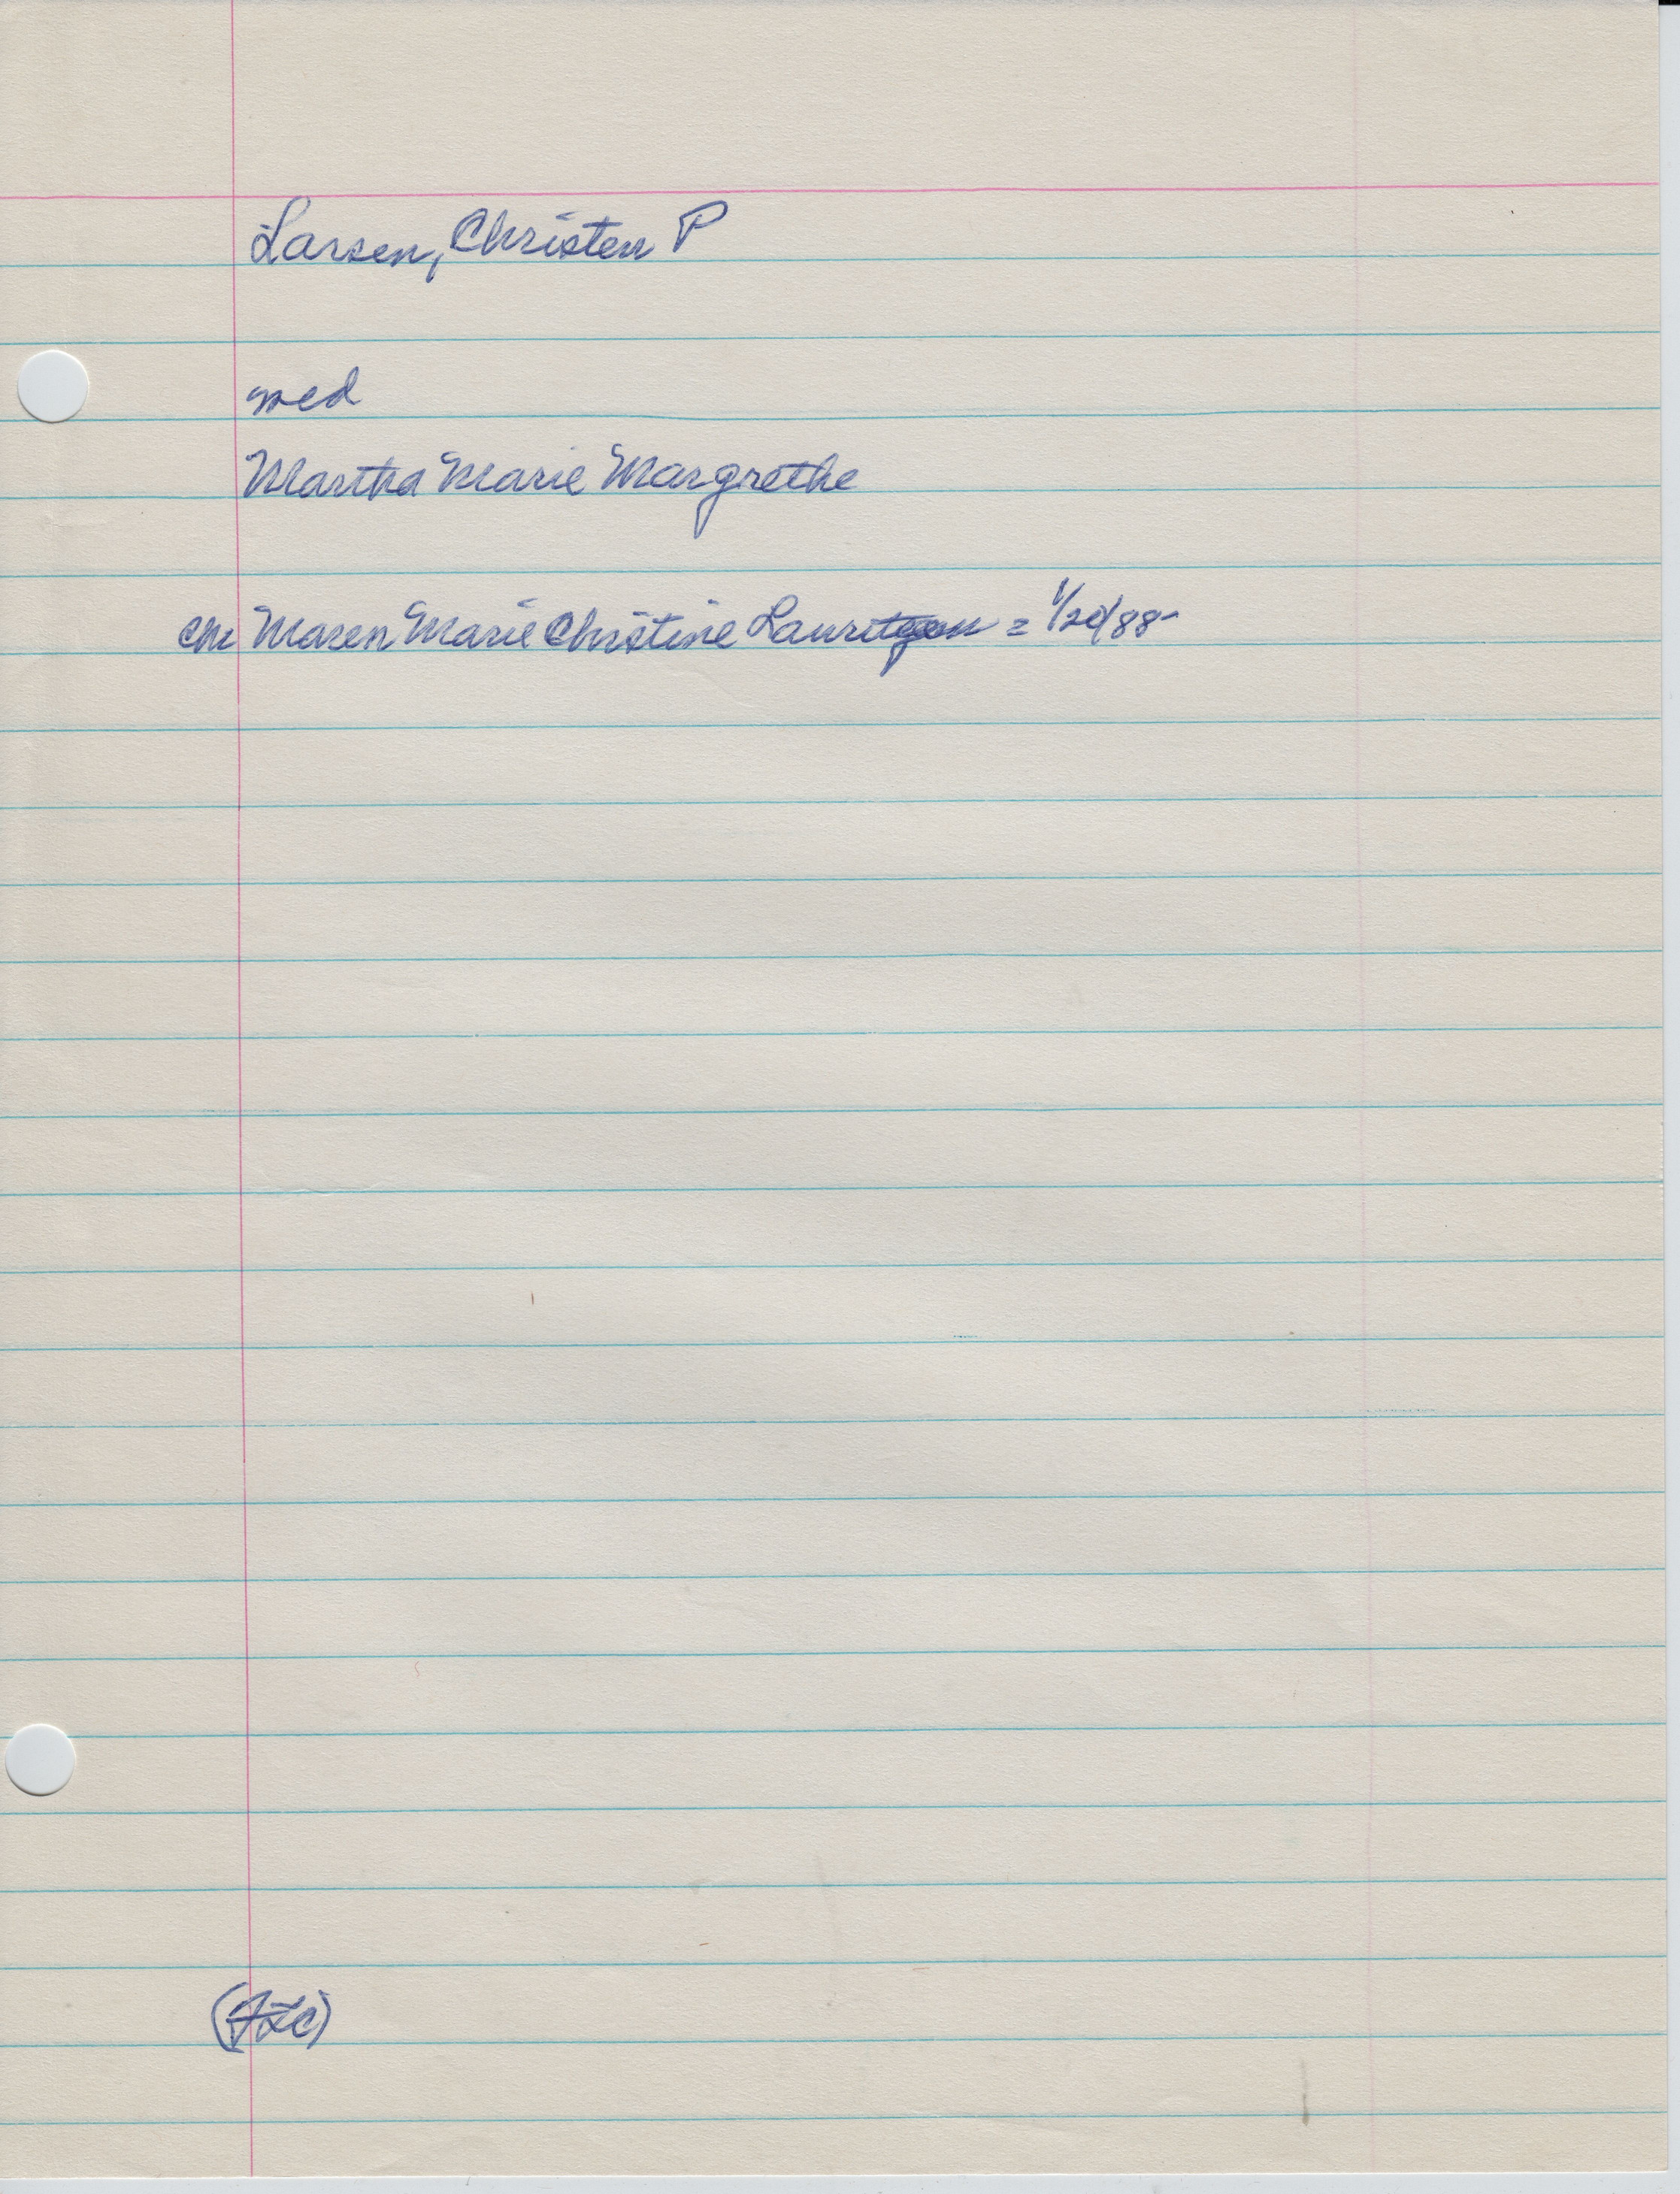 Larsen, Christen P
med
Martha Marie Margrethe
ch: Maren Marie Christine = 1/20/88-
(FLC)